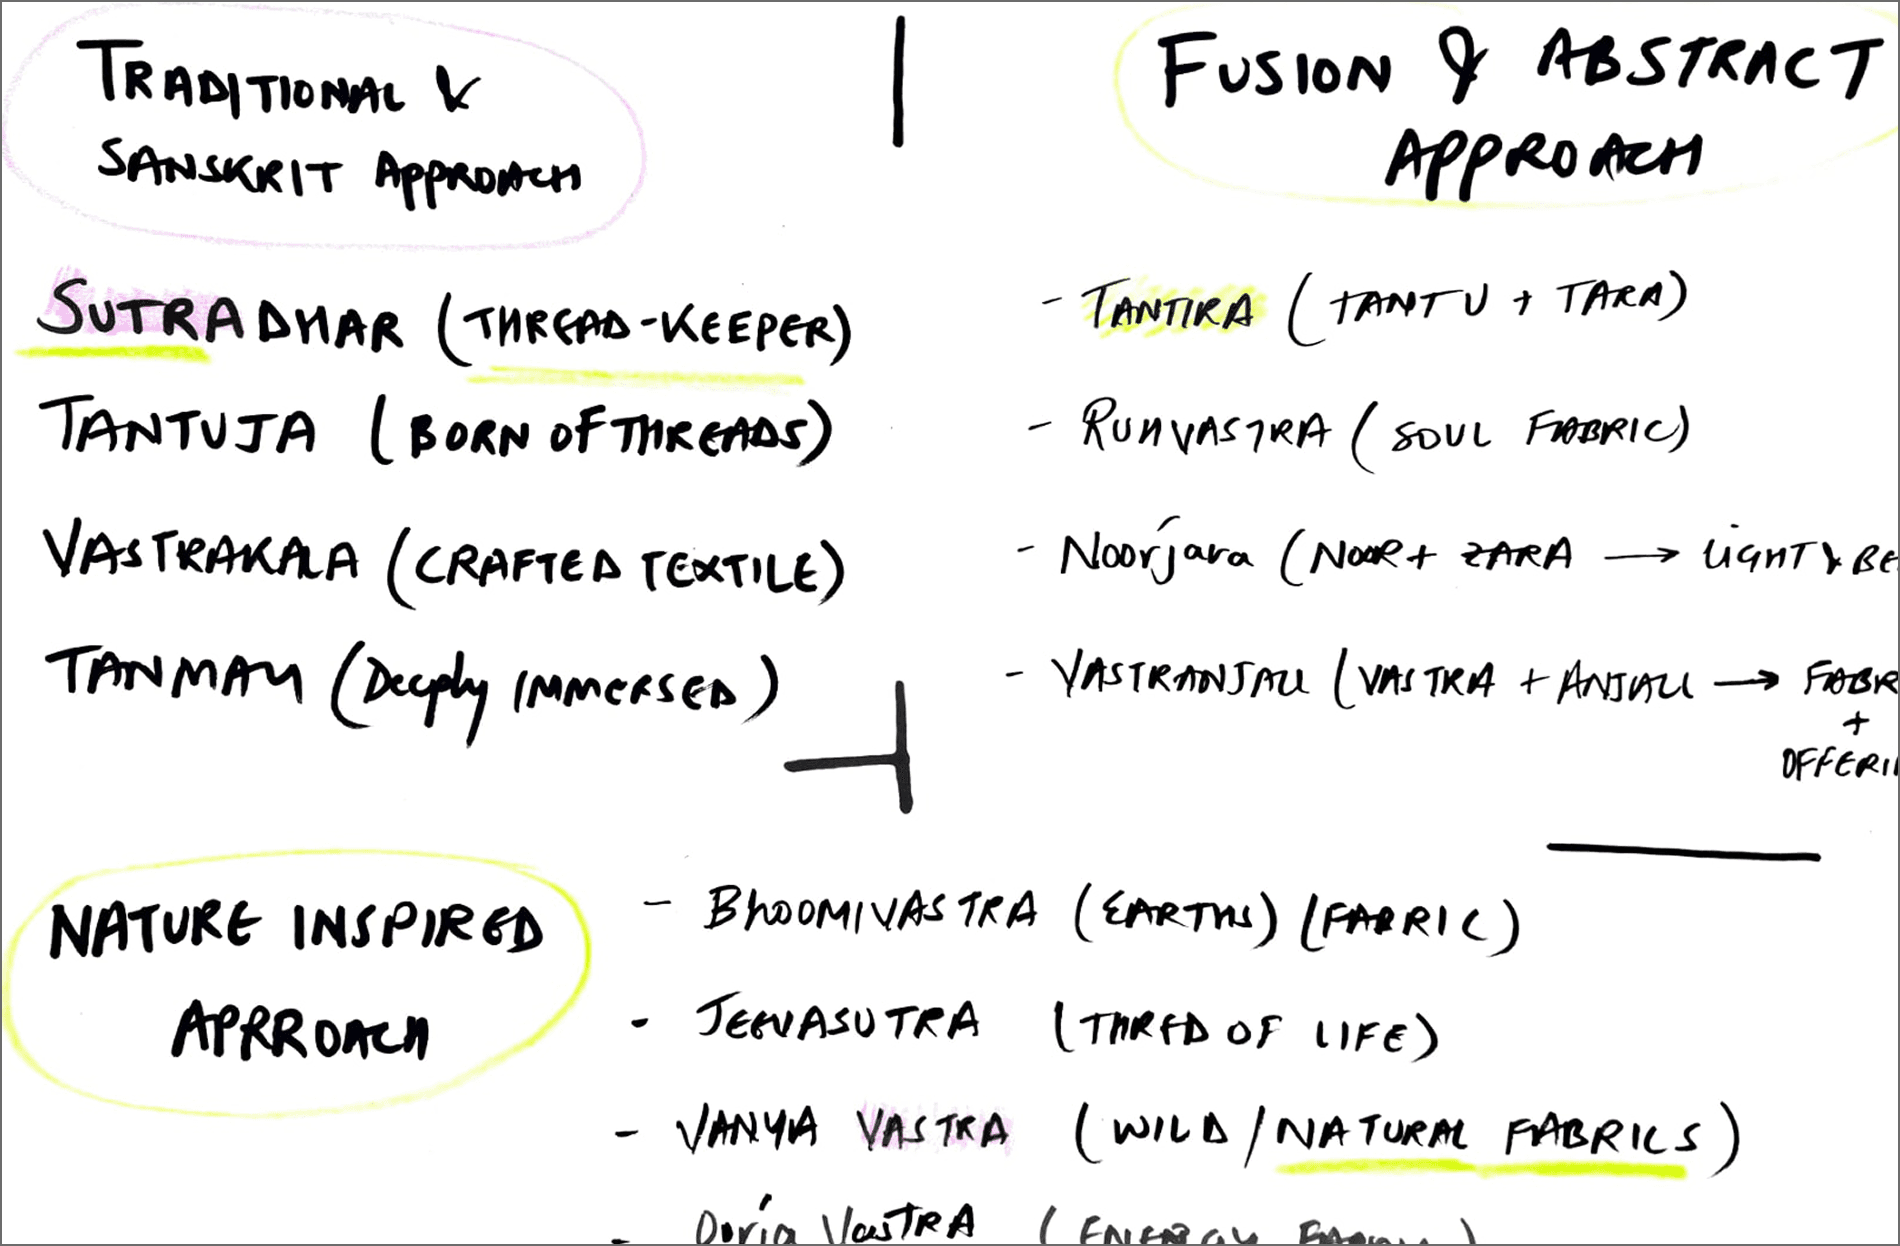 TRADITIONAL &
SANSKRIT APPROACH
SUTRADHAR (THREAD-KEEPER)
TANTUJA (BORN OF THREADS)
VASTRAKALA (CRAFTED TEXTILE)
TANMAY (Deeply IMMERSED)
FUSION & ABSTRACT
APPROACH
- TANTIRA (TANTU + TARA)
- RUHVASTRA (SOUL FABRIC)
- Noorjara (NOOR + ZARA → LIGHT & BE
- VASTRANJALI (VASTRA + ANJALI → FABR
+
OFFERI
NATURE INSPIRED
APRROACH
- BHOOMIVASTRA (EARTHS) (FABRIC)
- JEEVASUTRA (THRED OF LIFE)
- VANYA VASTRA (WILD/NATURAL FABRICS)
- VASTRA (ENERGY